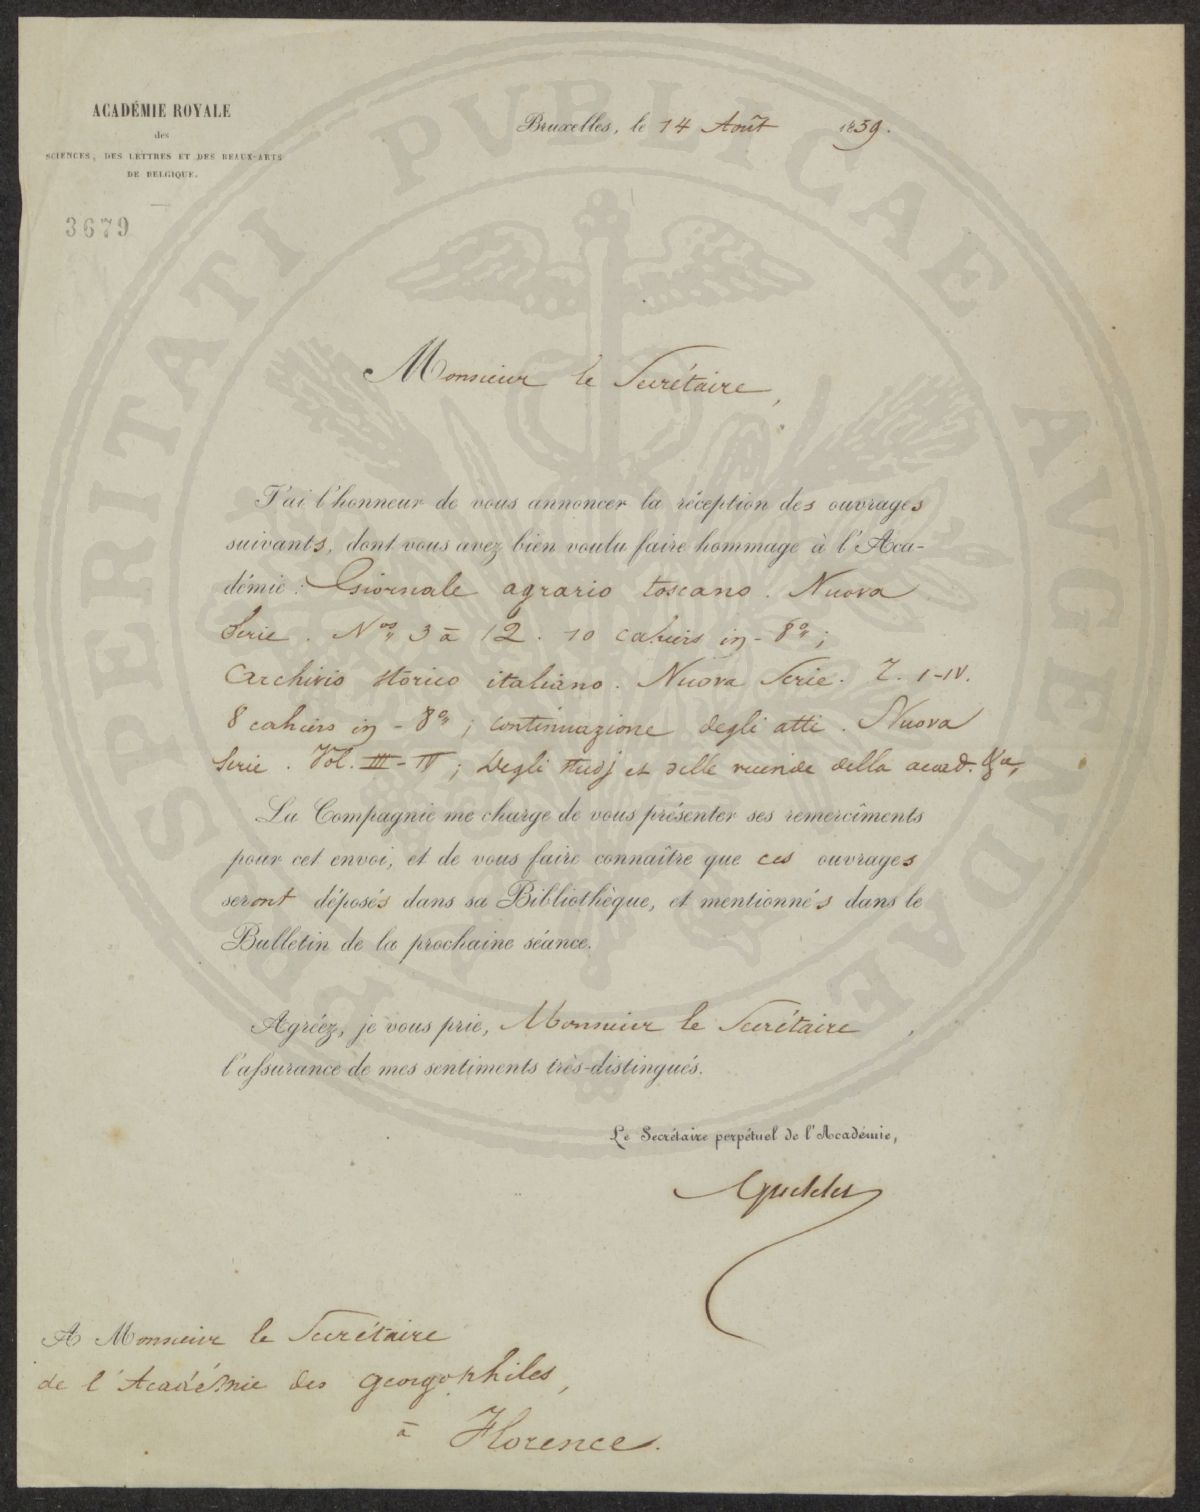 ACADÉMIE ROYALE
des
SCIENCES, DES LETTRES ET DES BEAUX-ARTS
DE BELGIQUE.
3679
Bruxelles, le 14 Août 1859.
Monsieur le Secrétaire,
J'ai l'honneur de vous annoncer la réception des ouvrages
suivants, dont vous avez bien voulu faire hommage à l'Aca-
démie : Giornale agrario toscano. Nuova
Serie. Nos 3 à 12. 10 cahiers in-8o;
Archivio storico italiano. Nuova Serie. T. I-IV.
8 cahiers in-8o; Continuazione degli atti. Nuova
Serie. Vol. III-IV; Degli studj et delle vicende della accad. &a,
La Compagnie me charge de vous présenter ses remercîments
pour cet envoi, et de vous faire connaître que ces ouvrages
seront déposés dans sa Bibliothèque, et mentionnés dans le
Bulletin de la prochaine séance.
Agréez, je vous prie, Monsieur le Secrétaire,
l'assurance de mes sentiments très-distingués.
Le Secrétaire perpétuel de l'Académie,
Quetelet
A Monsieur le Secrétaire
de l'Académie des georgophiles,
à Florence.
PROSPERITATI PUBLICAE AUGENDAE